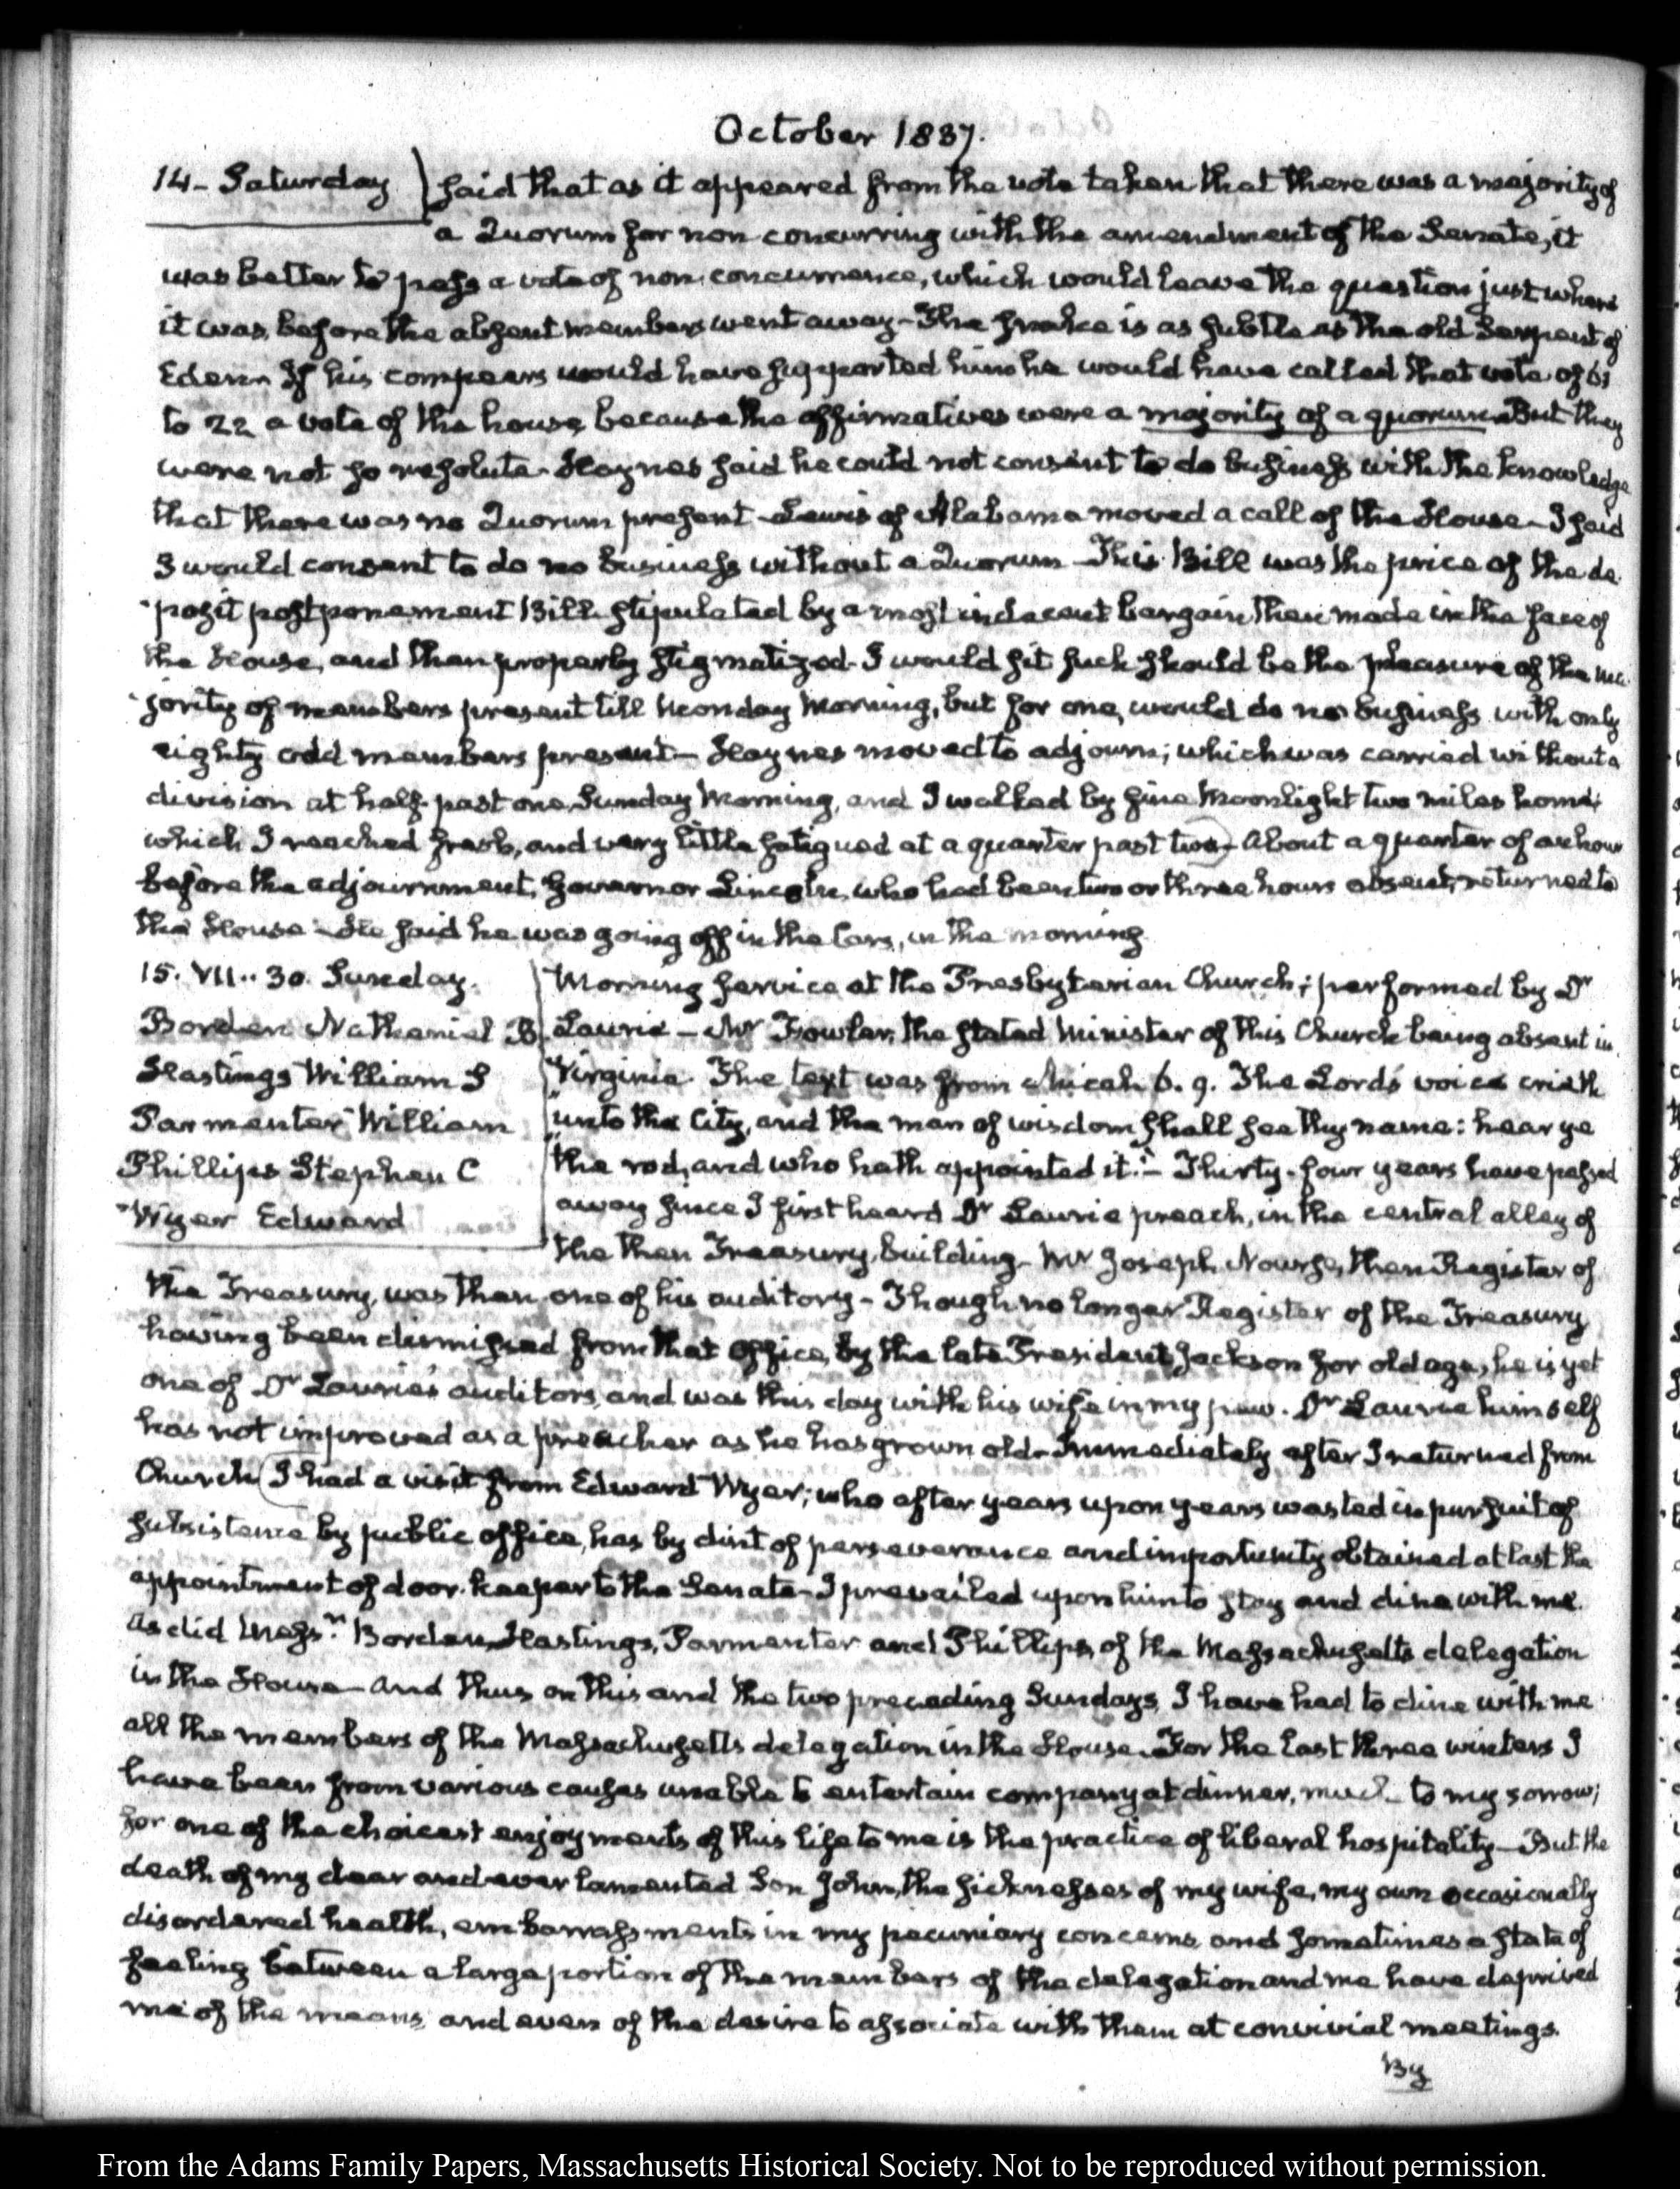 October 1837.
14 - Saturday
said that as it appeared from the vote taken that there was a majority of
a Quorum for non concurring with the amendment of the Senate, it
was better to pass a vote of non concurrence, which would leave the question just where
it was before the absent members went away - The snake is as subtle as the old Serpent of
Eden - If his compeers would have supported him he would have called that vote of 61
to 22 a vote of the house, because the affirmatives were a majority of a quorum - But they
were not so resolute - Haynes said he could not consent to do business with the knowledge
that there was no Quorum present - Lewis of Alabama moved a call of the House - I said
I would consent to do no business without a Quorum - This Bill was the price of the de-
posit postponement Bill stipulated by a most indecent bargain then made in the face of
the House, and then properly stigmatized - I would sit such should be the pleasure of the ma-
jority of members present till Monday Morning, but for one, would do no business with only
eighty odd members present - Haynes moved to adjourn; which was carried without a
division at half past one Sunday Morning, and I walked by fine Moonlight two miles home,
which I reached fresh, and very little fatigued at a quarter past two - About a quarter of an hour
before the adjournment, Governor Lincoln, who had been two or three hours absent, returned to
the House - He said he was going off in the Cars, in the morning
15. VII.. 30. Sunday.
Borden Nathaniel B.
Hastings William S
Parmenter William
Phillips Stephen C
Wyer Edward
Morning service at the Presbyterian Church; performed by Dr
Laurie - Mr Fowler, the stated Minister of this Church being absent in
Virginia. The text was from Micah 6. 9. The Lord's voice crieth
"unto the City, and the man of wisdom shall see thy name: hear ye
"the rod, and who hath appointed it." - Thirty-four years have passed
away since I first heard Dr Laurie preach, in the central alley of
the then Treasury building - Mr Joseph Nourse, then Register of
the Treasury, was then one of his auditory - Though no longer Register of the Treasury
having been dismissed from that office, by the late President Jackson for old age, he is yet
one of Dr Laurie's auditors, and was this day with his wife in my pew. Dr Laurie himself
has not improved as a preacher as he has grown old - Immediately after I returned from
Church I had a visit from Edward Wyer; who after years upon years wasted in pursuit of
subsistence by public office, has by dint of perseverance and importunity obtained at last the
appointment of door-keeper to the Senate - I prevailed upon him to stay and dine with me.
As did Messrs. Borden, Hastings, Parmenter and Phillips, of the Massachusetts delegation
in the House - And thus on this and the two preceding Sundays, I have had to dine with me
all the members of the Massachusetts delegation in the House. For the last three winters I
have been from various causes unable to entertain company at dinner, much to my sorrow;
for one of the choicest enjoyments of this life to me is the practice of liberal hospitality - But the
death of my dear and ever lamented Son John, the sicknesses of my wife, my own occasionally
disordered health, embarrassments in my pecuniary concerns and sometimes a state of
feeling between a large portion of the members of the delegation and me have deprived
me of the means and even of the desire to associate with them at convivial meetings.
By
From the Adams Family Papers, Massachusetts Historical Society. Not to be reproduced without permission.